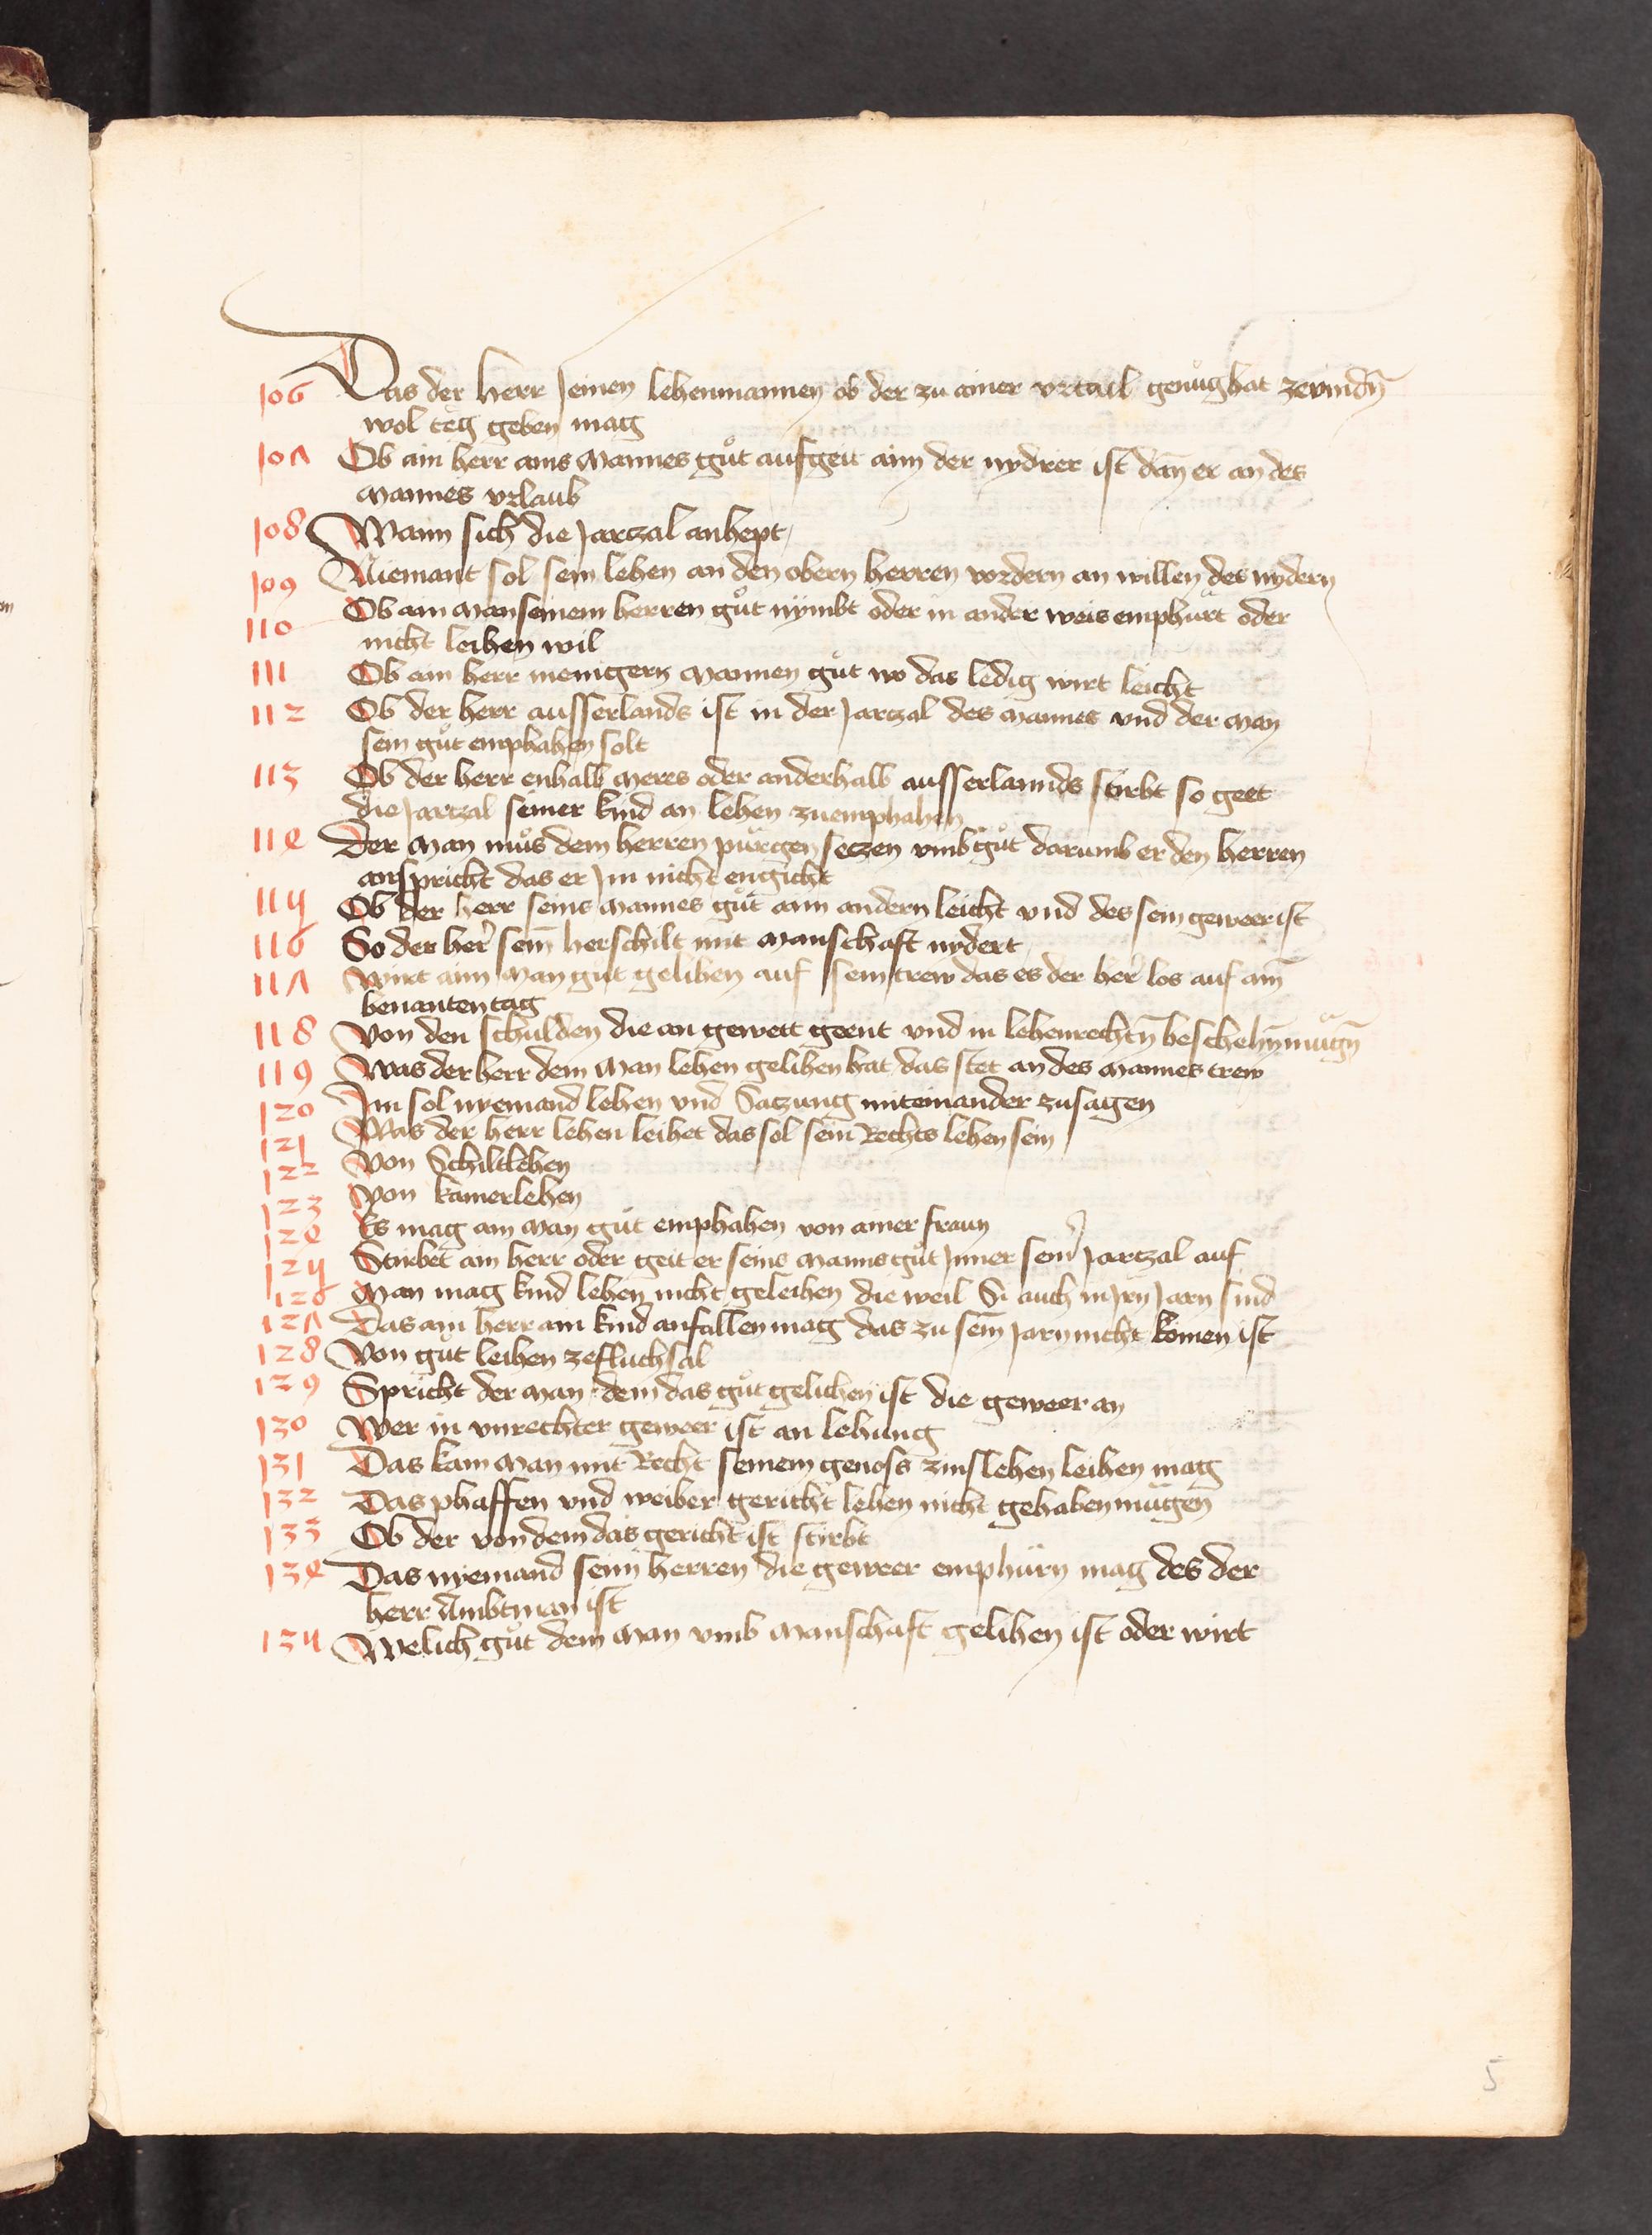 106 Das der herr seinen lehenmannen ob der zu ainer vrtail genůg hat zevindn̄
wol teg geben mag
107 Ob ain herr ains Mannes gůt aufgeit aim der nydrer ist dan̄ er an des
Mannes vrlaub
108 Wann sich die Jarczal anhept
109 Niemant sol sein lehen an den obern herren vordern an willen des nydern
110 Ob ain Man seinem herren gůt nymbt oder in ander weis emphürt oder
nicht leihen wil
111 Ob ain herr menigern Mannen gůt wo das ledig wirt leicht
112 Ob der herr ausserlands ist in der Jarczal des Mannes vnd der Man
sein gůt emphahen solt
113 Ob der herr enhalb Meres oder anderhalb ausserlannds stirbt so geet
die Jarczal seiner kind an lehen zuemphahen
114 Der Man můs dem herren pürgen seczen vmb gůt darumb er den herren
anspricht das er Im nicht engicht
115 Ob der herr seins Mannes gůt aim andern leicht vnd des sein geweer ist
116 So der her̄ sein̄ herschilt mit Manschaft nydert
117 Wirt aim Man gut gelihen auf sein trew das es der her̄ los auf ain̄
benanten tag
118 Von den schulden die an gewett geent vnd in lehenrechtn̄ beschehn̄ mügn̄
119 Was der herr dem Man lehen gelihen hat das stet an des Mannes trew
120 Im sol nyemand lehen vnd Saczung miteinander zusagen
121 Was der herr lehen leihet das sol sein Rechts lehen sein
122 Von Schiltlehen
123 Von kamerlehen
124 Es mag ain Man gůt emphahen von ainer frawn
125 Stirbet ain herr oder geit er seins Manns gůt Inner sein̄ Jarczal auf
126 Man mag kind lehen nicht geleihen die weil Si auch in Irn Jarn sind
127 Das ain herr ain kind anfallen mag das zu sein̄ Jarn nicht komen ist
128 Von gůt leihen zefluchsal
129 Spricht der Man dem das gůt gelichen ist die geweer an
130 Wer in vnrechter geweer ist an lehung
131 Das kain Man mit Recht seinem genoss zinslehen leihen mag
132 Das phaffen vnd weiber gericht lehen nicht gehaben mügen
133 Ob der von dem das gericht ist stirbt
134 Das nyemand seim herren die geweer emphürn mag des der
herr Ambtman ist
135 Welich gůt dem Man vmb Manschaft gelihen ist oder wirt
5